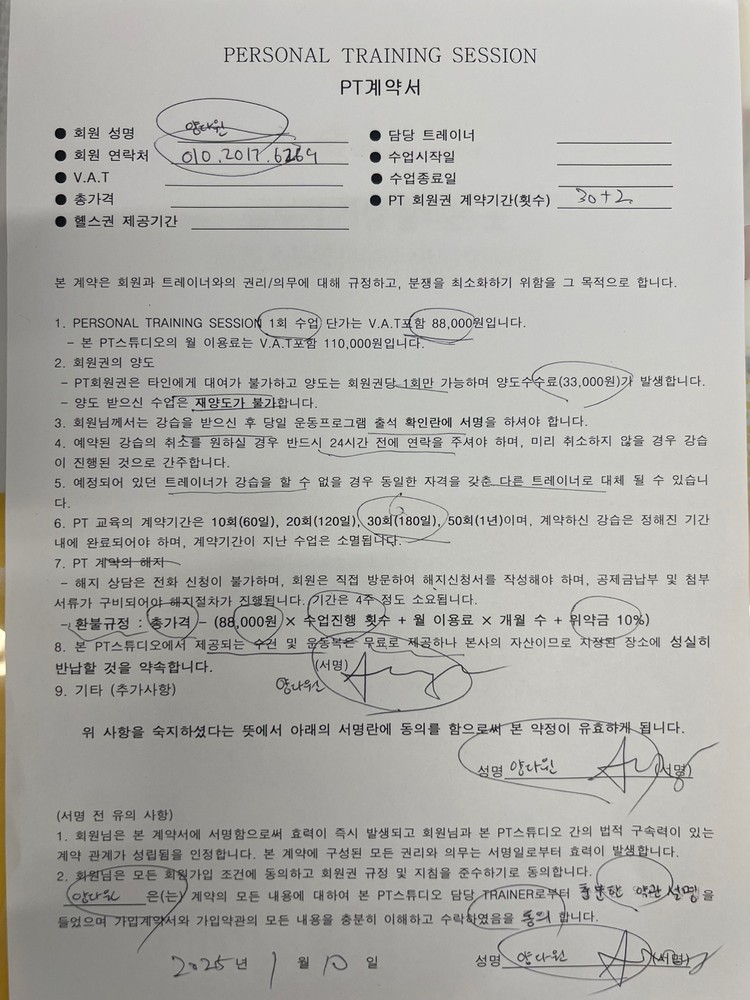 PERSONAL TRAINING SESSION
PT계약서
● 회원 성명 양다원
● 담당 트레이너
● 회원 연락처 010.2017.6269
● 수업시작일
● V.A.T
● 수업종료일
● 총가격
● PT 회원권 계약기간(횟수) 30+2
● 헬스권 제공기간
본 계약은 회원과 트레이너와의 권리/의무에 대해 규정하고, 분쟁을 최소화하기 위함을 그 목적으로 합니다.
1. PERSONAL TRAINING SESSION 1회 수업 단가는 V.A.T포함 88,000원입니다.
- 본 PT스튜디오의 월 이용료는 V.A.T포함 110,000원입니다.
2. 회원권의 양도
- PT회원권은 타인에게 대여가 불가하고 양도는 회원권당 1회만 가능하며 양도수수료(33,000원)가 발생합니다.
- 양도 받으신 수업은 재양도가 불가합니다.
3. 회원님께서는 강습을 받으신 후 당일 운동프로그램 출석 확인란에 서명을 하셔야 합니다.
4. 예약된 강습의 취소를 원하실 경우 반드시 24시간 전에 연락을 주셔야 하며, 미리 취소하지 않을 경우 강습
이 진행된 것으로 간주합니다.
5. 예정되어 있던 트레이너가 강습을 할 수 없을 경우 동일한 자격을 갖춘 다른 트레이너로 대체 될 수 있습니
다.
6. PT 교육의 계약기간은 10회(60일), 20회(120일), 30회(180일), 50회(1년)이며, 계약하신 강습은 정해진 기간
내에 완료되어야 하며, 계약기간이 지난 수업은 소멸됩니다.
7. PT 계약의 해지
- 해지 상담은 전화 신청이 불가하며, 회원은 직접 방문하여 해지신청서를 작성해야 하며, 공제금납부 및 첨부
서류가 구비되어야 해지절차가 진행됩니다. 기간은 4주 정도 소요됩니다.
- 환불규정 : 총가격 - (88,000원 × 수업진행 횟수 + 월 이용료 × 개월 수 + 위약금 10%)
8. 본 PT스튜디오에서 제공되는 수건 및 운동복은 무료로 제공하나 본사의 자산이므로 지정된 장소에 성실히
반납할 것을 약속합니다. (서명)
양다원
9. 기타 (추가사항)
위 사항을 숙지하셨다는 뜻에서 아래의 서명란에 동의를 함으로써 본 약정이 유효하게 됩니다.
성명 양다원 (서명)
(서명 전 유의 사항)
1. 회원님은 본 계약서에 서명함으로써 효력이 즉시 발생되고 회원님과 본 PT스튜디오 간의 법적 구속력이 있는
계약 관계가 성립됨을 인정합니다. 본 계약에 구성된 모든 권리와 의무는 서명일로부터 효력이 발생합니다.
2. 회원님은 모든 회원가입 조건에 동의하고 회원권 규정 및 지침을 준수하기로 동의합니다.
양다원 은(는) 계약의 모든 내용에 대하여 본 PT스튜디오 담당 TRAINER로부터 충분한 약관 설명 을
들었으며 가입계약서와 가입약관의 모든 내용을 충분히 이해하고 수락하였음을 동의 합니다.
2025년 1 월 10 일 성명 양다원 (서명)